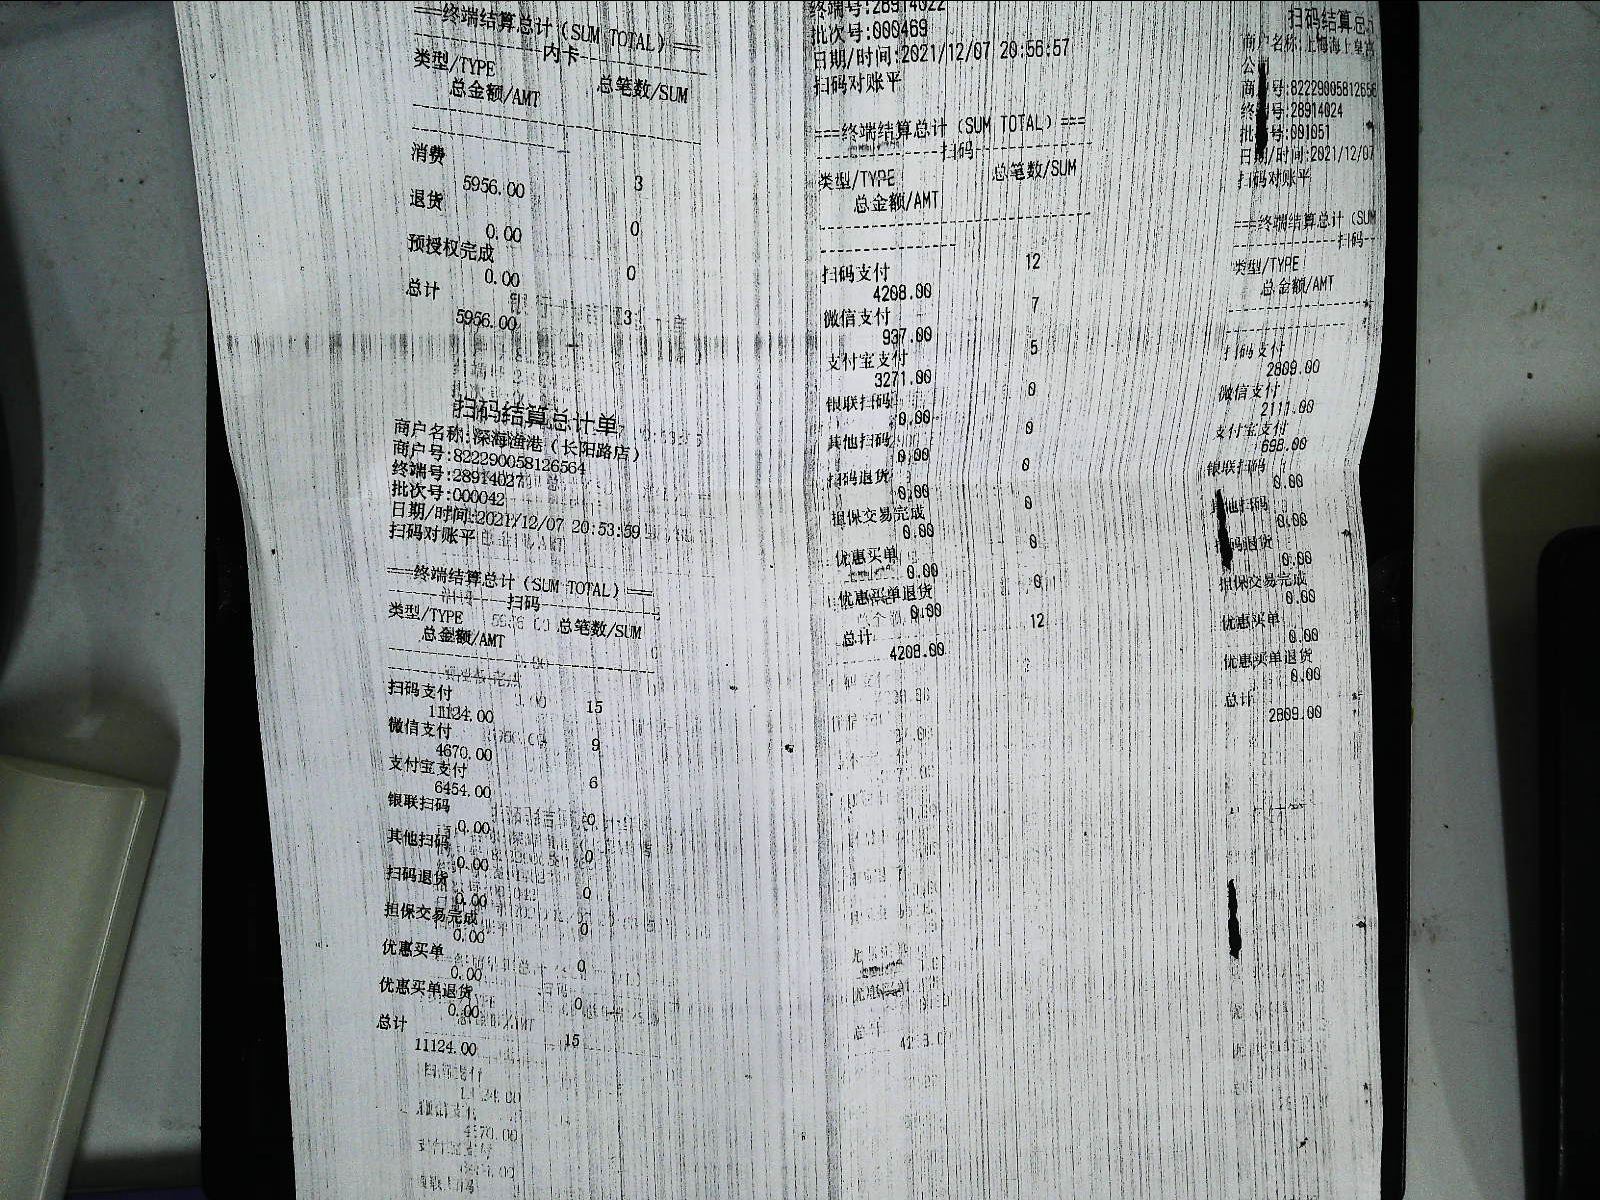 ===终端结算总计(SUM TOTAL)===
内卡
类型/TYPE 总笔数/SUM
总金额/AMT
消费
5956.00 3
退货
0.00 0
预授权完成
0.00 0
总计
5956.00 3
扫码结算总计单
商户名称:深海渔港(长阳路店)
商户号:822290058126564
终端号:28914027
批次号:000042
日期/时间:2021/12/07 20:53:59
扫码对账平
===终端结算总计(SUM TOTAL)===
扫码
类型/TYPE 总笔数/SUM
总金额/AMT
扫码支付
11124.00 15
微信支付
4670.00 9
支付宝支付
6454.00 6
银联扫码
0.00 0
其他扫码
0.00 0
扫码退货
0.00 0
担保交易完成
0.00 0
优惠买单
0.00 0
优惠买单退货
0.00 0
总计
11124.00 15
终端号:28914022
批次号:000469
日期/时间:2021/12/07 20:56:57
扫码对账平
===终端结算总计(SUM TOTAL)===
扫码
类型/TYPE 总笔数/SUM
总金额/AMT
扫码支付 12
4208.00
微信支付 7
937.00
支付宝支付 5
3271.00
银联扫码 0
0.00
其他扫码 0
0.00
扫码退货 0
0.00
担保交易完成 0
0.00
优惠买单 0
0.00
优惠买单退货 0
0.00
总计 12
4208.00
扫码结算总
商户名称:上海海上皇
公
商 号:8222900581265
终 号:28914024
批 号:001051
日期/时间:2021/12/07
扫码对账平
===终端结算总计(SUM
扫码
类型/TYPE
总金额/AMT
扫码支付
2809.00
微信支付
2111.00
支付宝支付
698.00
银联扫码
0.00
其他扫码
0.00
扫码退货
0.00
担保交易完成
0.00
优惠买单
0.00
优惠买单退货
0.00
总计
2809.00